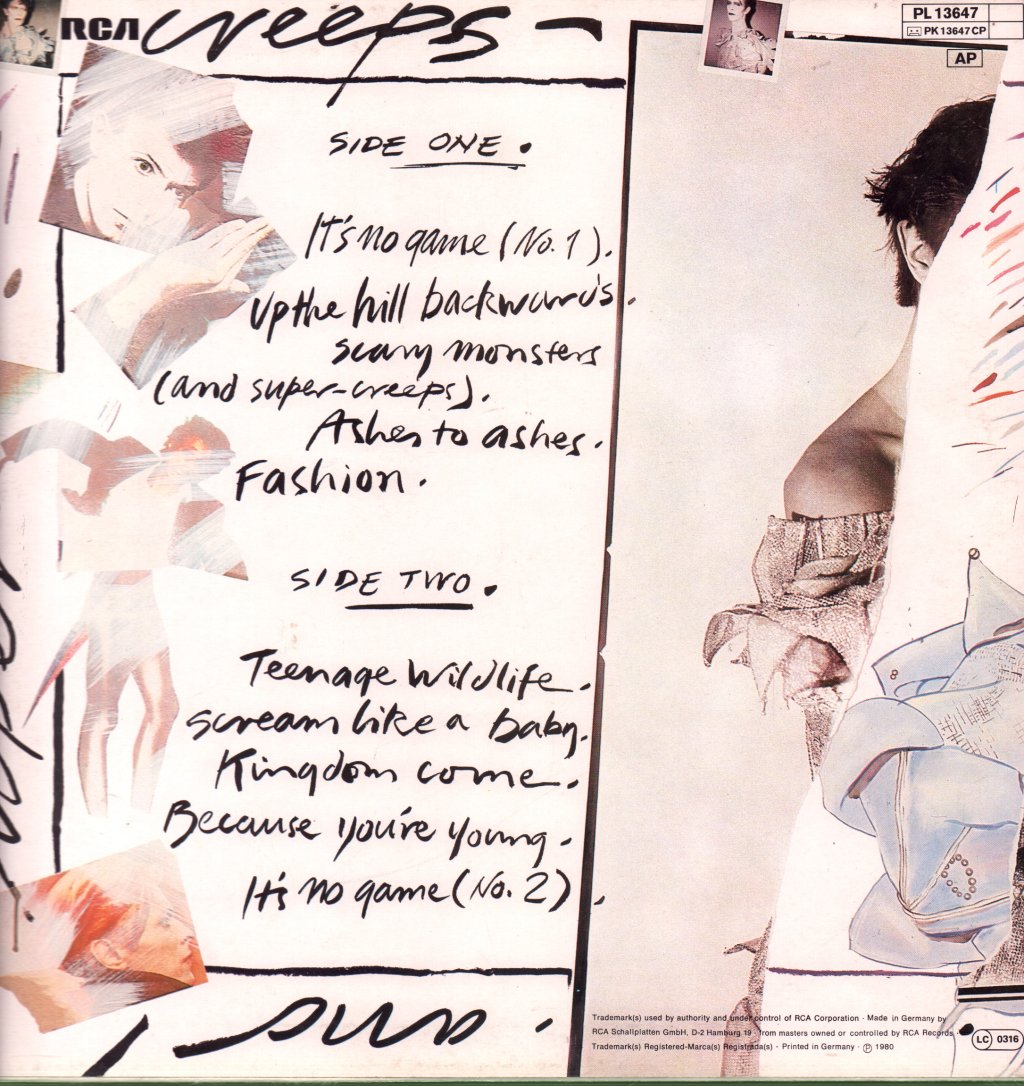 RCA creeps -
PL 13647
PK 13647 CP
AP
SIDE ONE.
It's no game (No. 1).
Up the hill backwards.
scary monsters
(and super-creeps).
Ashes to ashes.
Fashion.
SIDE TWO.
Teenage Wildlife.
scream like a baby.
Kingdom come.
Because you're young.
It's no game (No. 2).
Trademark(s) used by authority and under control of RCA Corporation · Made in Germany by
RCA Schallplatten GmbH, D-2 Hamburg 19 · from masters owned or controlled by RCA Records ·
Trademark(s) Registered-Marca(s) Registrada(s) · Printed in Germany · Ⓟ 1980
LC 0316